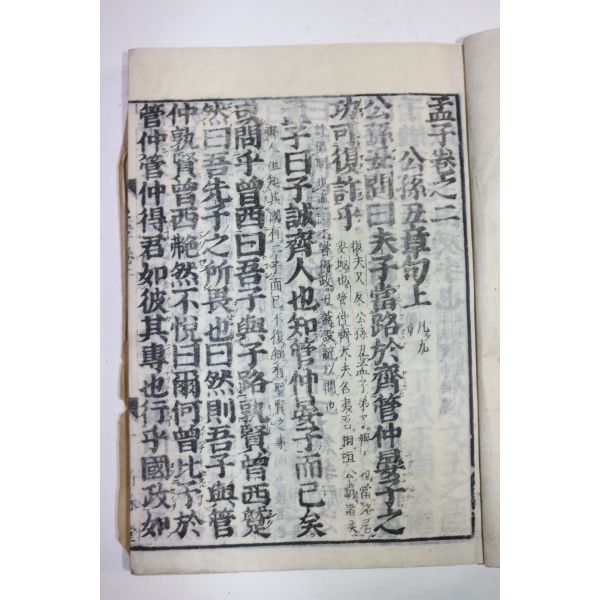 孟子卷之二
公孫丑章句上 凡九章
公孫丑問曰夫子當路於齊管仲晏子之
功可復許乎
孟子曰子誠齊人也知管仲晏子而已矣
齊人但知其國有二子而已不復知有聖賢之事
或問乎曾西曰吾子與子路孰賢曾西蹵
然曰吾先子之所畏也曰然則吾子與管
仲孰賢曾西艴然不悅曰爾何曾比予於
管仲管仲得君如彼其專也行乎國政如